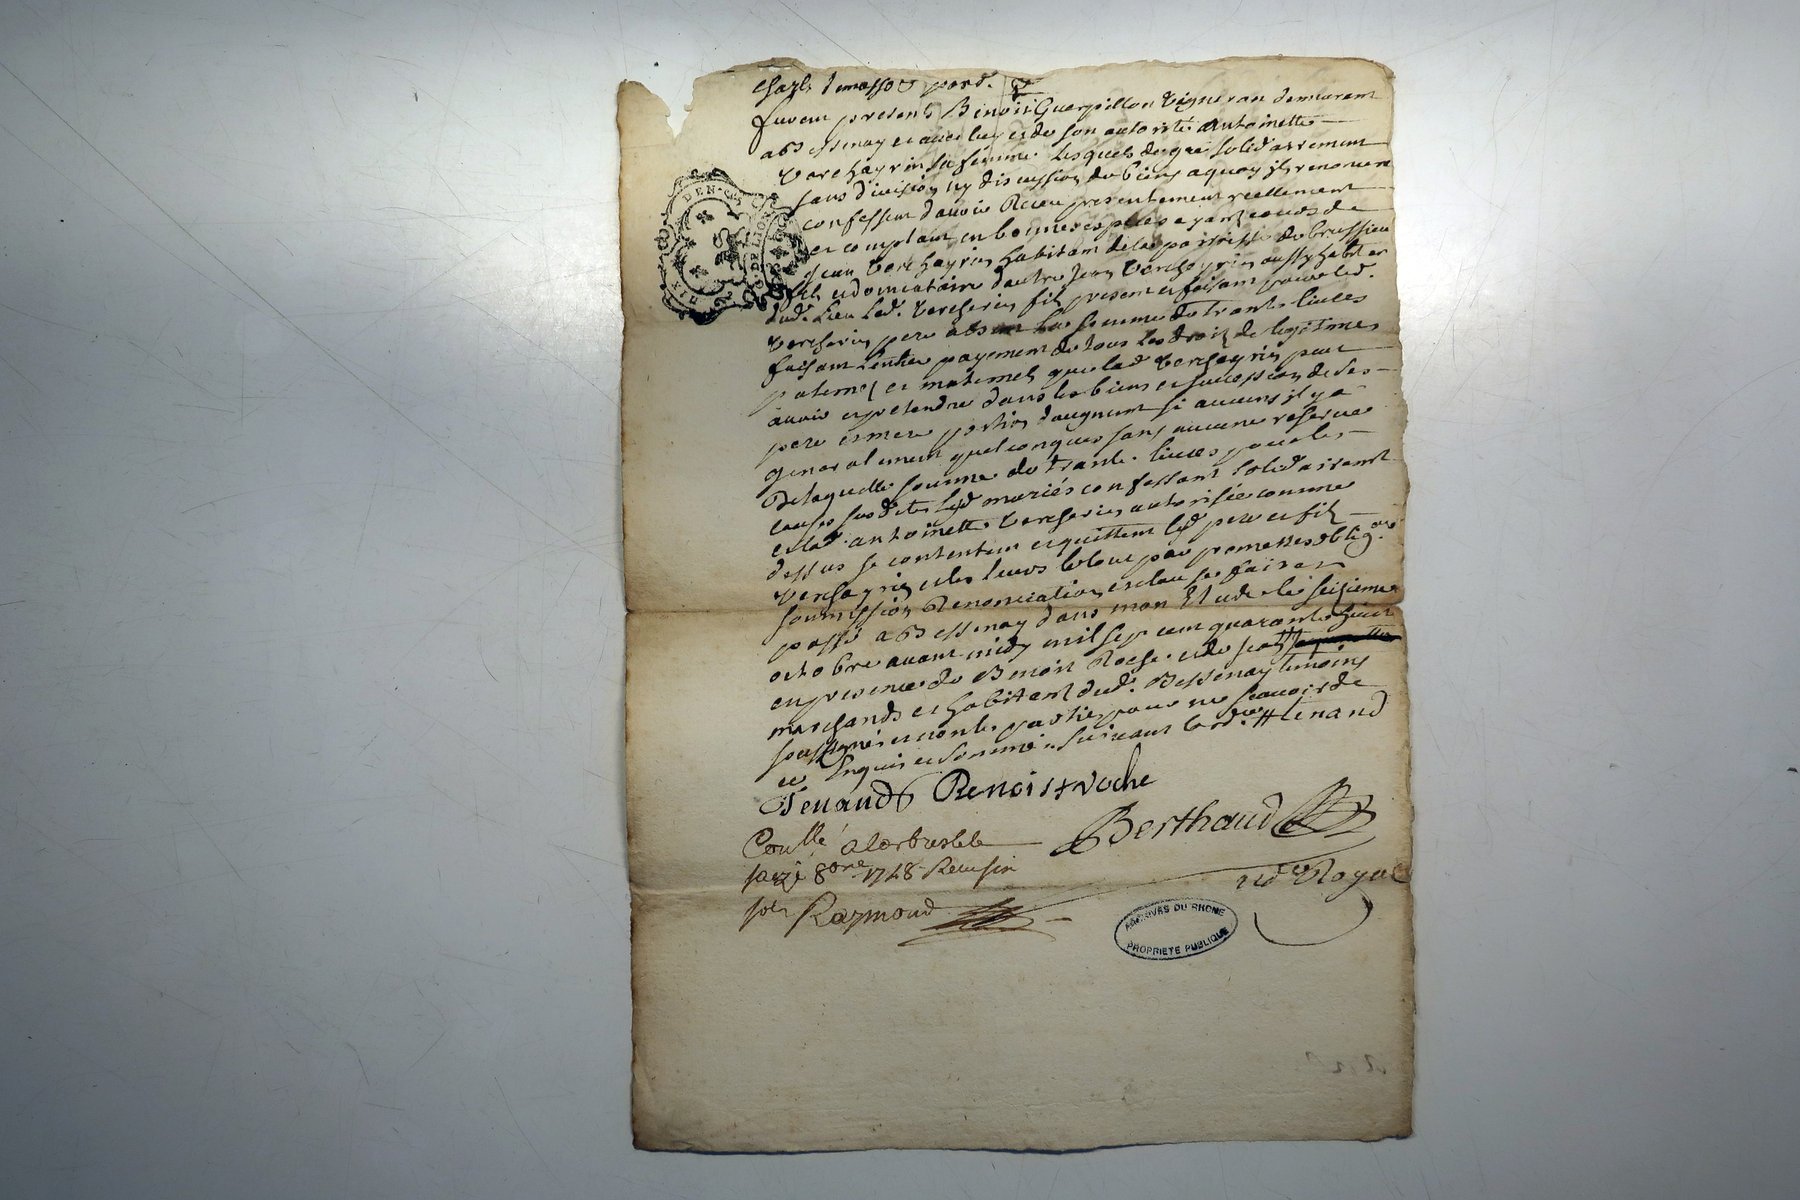 furent presents Benoist Guerpillon vigneron demeurant
a Bessenay et avec luy et de son autorité antoinette
Verchayrin sa femme. lesquels de gré solidairement
sans division ny discussion de biens a quoy ils renoncent
confessent d'avoir Receu presentement reellement
et comptant en bonnes especes ayant cours de
Jean Verchayrin habitant de la parroisse de brussieu
fils et donnataire d'autre Jean Verchayrin aussy habitant
dud. Lieu led. Vercherin fils present et faisant pour led.
Vercherin pere absent la somme de trante livres
faisant l'entier payement de tous les droits de legitimes
paternel et maternels que lad Verchayrin peut
avoir et pretendre dans les biens et succession de ses
pere et mere portion d'augment si aucuns il y a
generalement quelconques sans aucune reserve
De laquelle somme de trante livres pour les
causes susdites lesd mariés confessant solidairement
et lad. antoinette Vercherin autorisée comme
dessus se contentent et quittent lesd pere et fils
Verchayrin et les leurs par promesses oblig.
soumission Renonciation et clauses faites
passé a Bessenay dans mon Etude le seizieme
octobre avant midy mil sept cent quarante huit
en presence de Benoist Roche et de
marchands et habitants dud. Bessenay temoins
soussignés et non les parties pour ne sçavoir de
ce Enquis et sommé suivant l'ord. # tenand
Tenand Benoist roche
Berthaud
Con.llé a larbresle le
seize 8bre 1748 Recu six
sols Raymond
nore Royal
DEN. G
DE LION
ARCHIVES DU RHONE
PROPRIETE PUBLIQUE